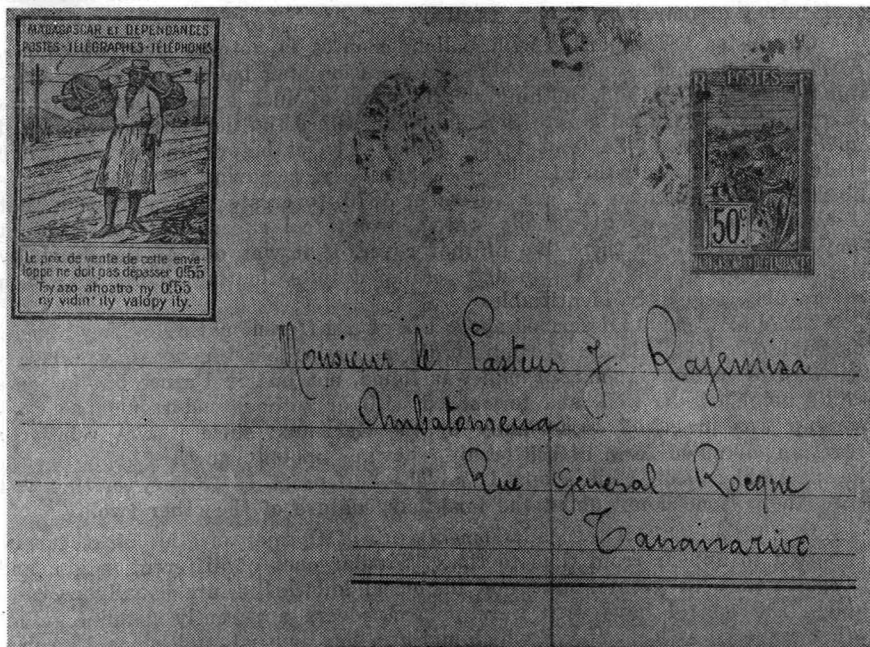 MADAGASCAR ET DÉPENDANCES
POSTES-TÉLÉGRAPHES-TÉLÉPHONES
Le prix de vente de cette enve-
loppe ne doit pas dépasser 0f55
Tsy azo ahoatra ny 0f55
ny vidin' ity valopy ity.
R POSTES F
50c.
MADAGASCAR ET DÉPENDANCES
Monsieur le Pasteur J. Rajemisa
Ambatomena
Rue General Rocque
Tananarive